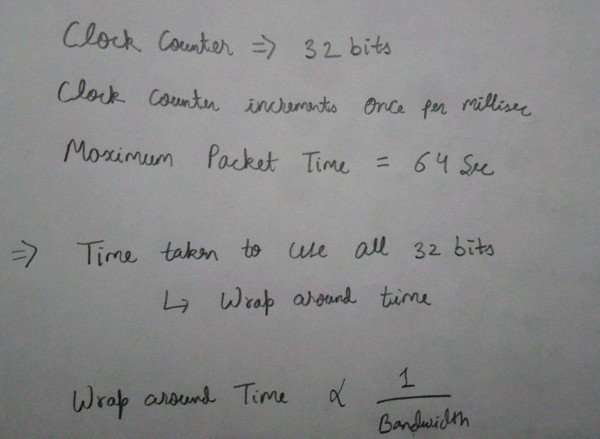 Clock Counter => 32 bits
Clock Counter increments once per millisec
Maximum Packet Time = 64 Sec
=> Time taken to use all 32 bits
↳ Wrap around time
Wrap around Time ∝ 1 / Bandwidth